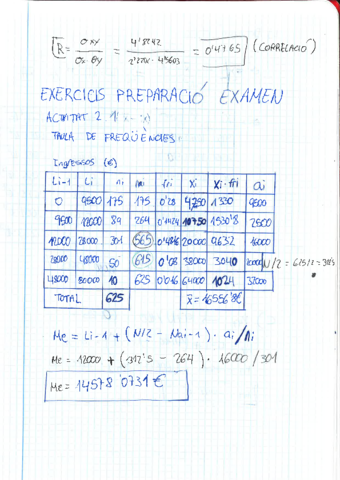 R = σxy / σx · σy = 4'8242 / · 4'5603 = 0'4765 (CORRELACIÓ)
EXERCICIS PREPARACIÓ EXAMEN
ACTIVITAT 2
TAULA DE FREQÜÈNCIES
Ingressos (€)
Li-1 Li ni fri xi xi·fri ai
0 9500 175 175 0'28 1330 9500
9500 12000 89 264 10750 1530'8 2500
12000 28000 301 565 20000 9632 16000
28000 48000 50 615 0'08 38000 3040
48000 80000 10 625 0'016 64000 1024 32000
TOTAL 625 x̄ = 16556'8€
Me = Li-1 + (N/2 - Nai-1) · ai/ni
Me = 12000 + (312'5 - 264) · 16000 / 301
Me = 14578'0731 €